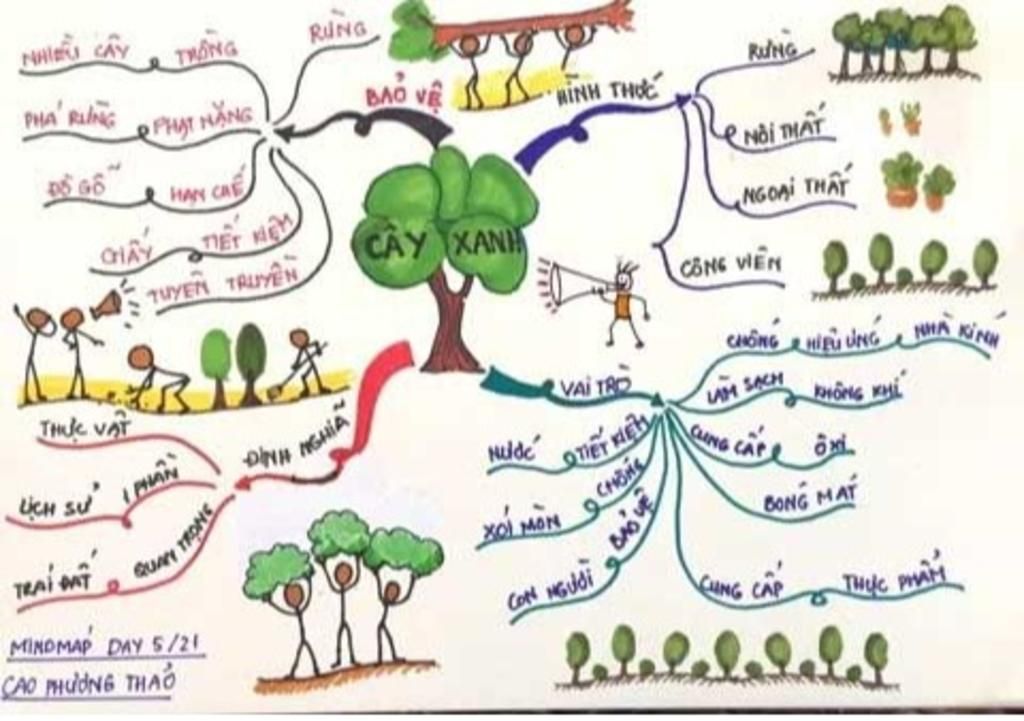 CÂY XANH
BẢO VỆ
RỪNG
NHIỀU CÂY TRỒNG
PHÁ RỪNG PHẠT NẶNG
ĐỒ GỖ HẠN CHẾ
GIẤY TIẾT KIỆM
TUYÊN TRUYỀN
HÌNH THỨC
RỪNG
NỘI THẤT
NGOẠI THẤT
CÔNG VIÊN
VAI TRÒ
CHỐNG HIỆU ỨNG NHÀ KÍNH
LÀM SẠCH KHÔNG KHÍ
CUNG CẤP ÔXI
BÓNG MÁT
CUNG CẤP THỰC PHẨM
NƯỚC TIẾT KIỆM
XÓI MÒN CHỐNG
CON NGƯỜI BẢO VỆ
ĐỊNH NGHĨA
THỰC VẬT
LỊCH SỬ 1 PHẦN
TRÁI ĐẤT QUAN TRỌNG
MINDMAP DAY 5/21
CAO PHƯƠNG THẢO